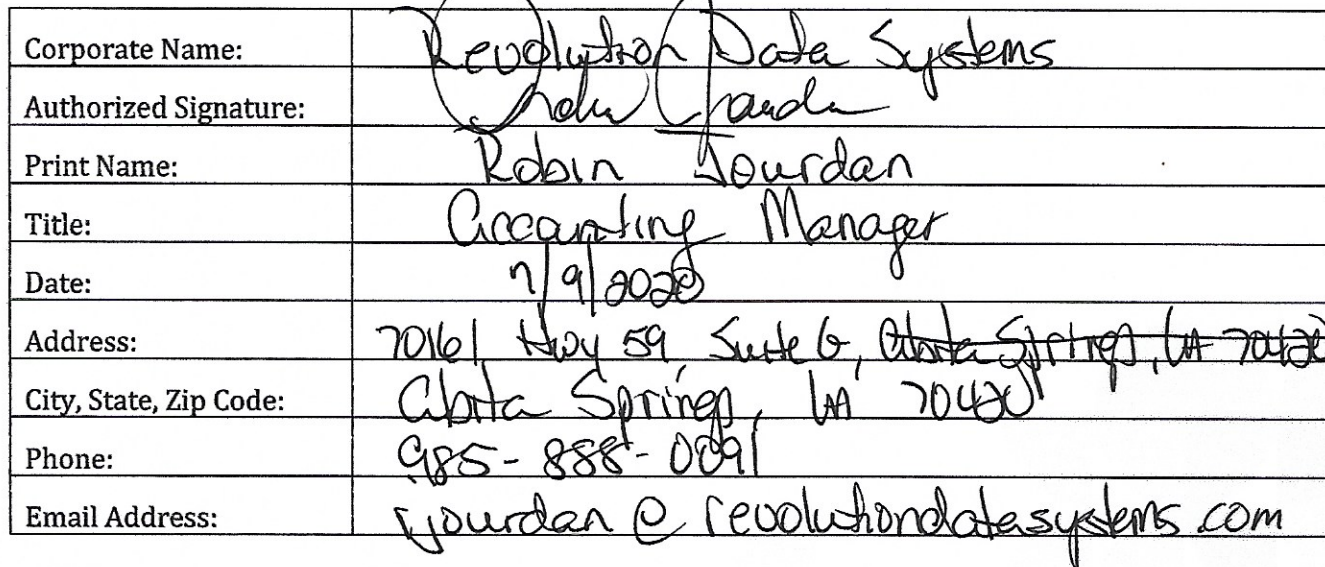 Corporate Name: Revolution Data Systems
Authorized Signature:
Print Name: Robin Jourdan
Title: Accounting Manager
Date: 7/9/2020
Address: 70161 Hwy 59, Suite G, Abita Springs, LA 70420
City, State, Zip Code: Abita Springs, LA 70420
Phone: 985-888-0091
Email Address: rjourdan@revolutiondatasystems.com